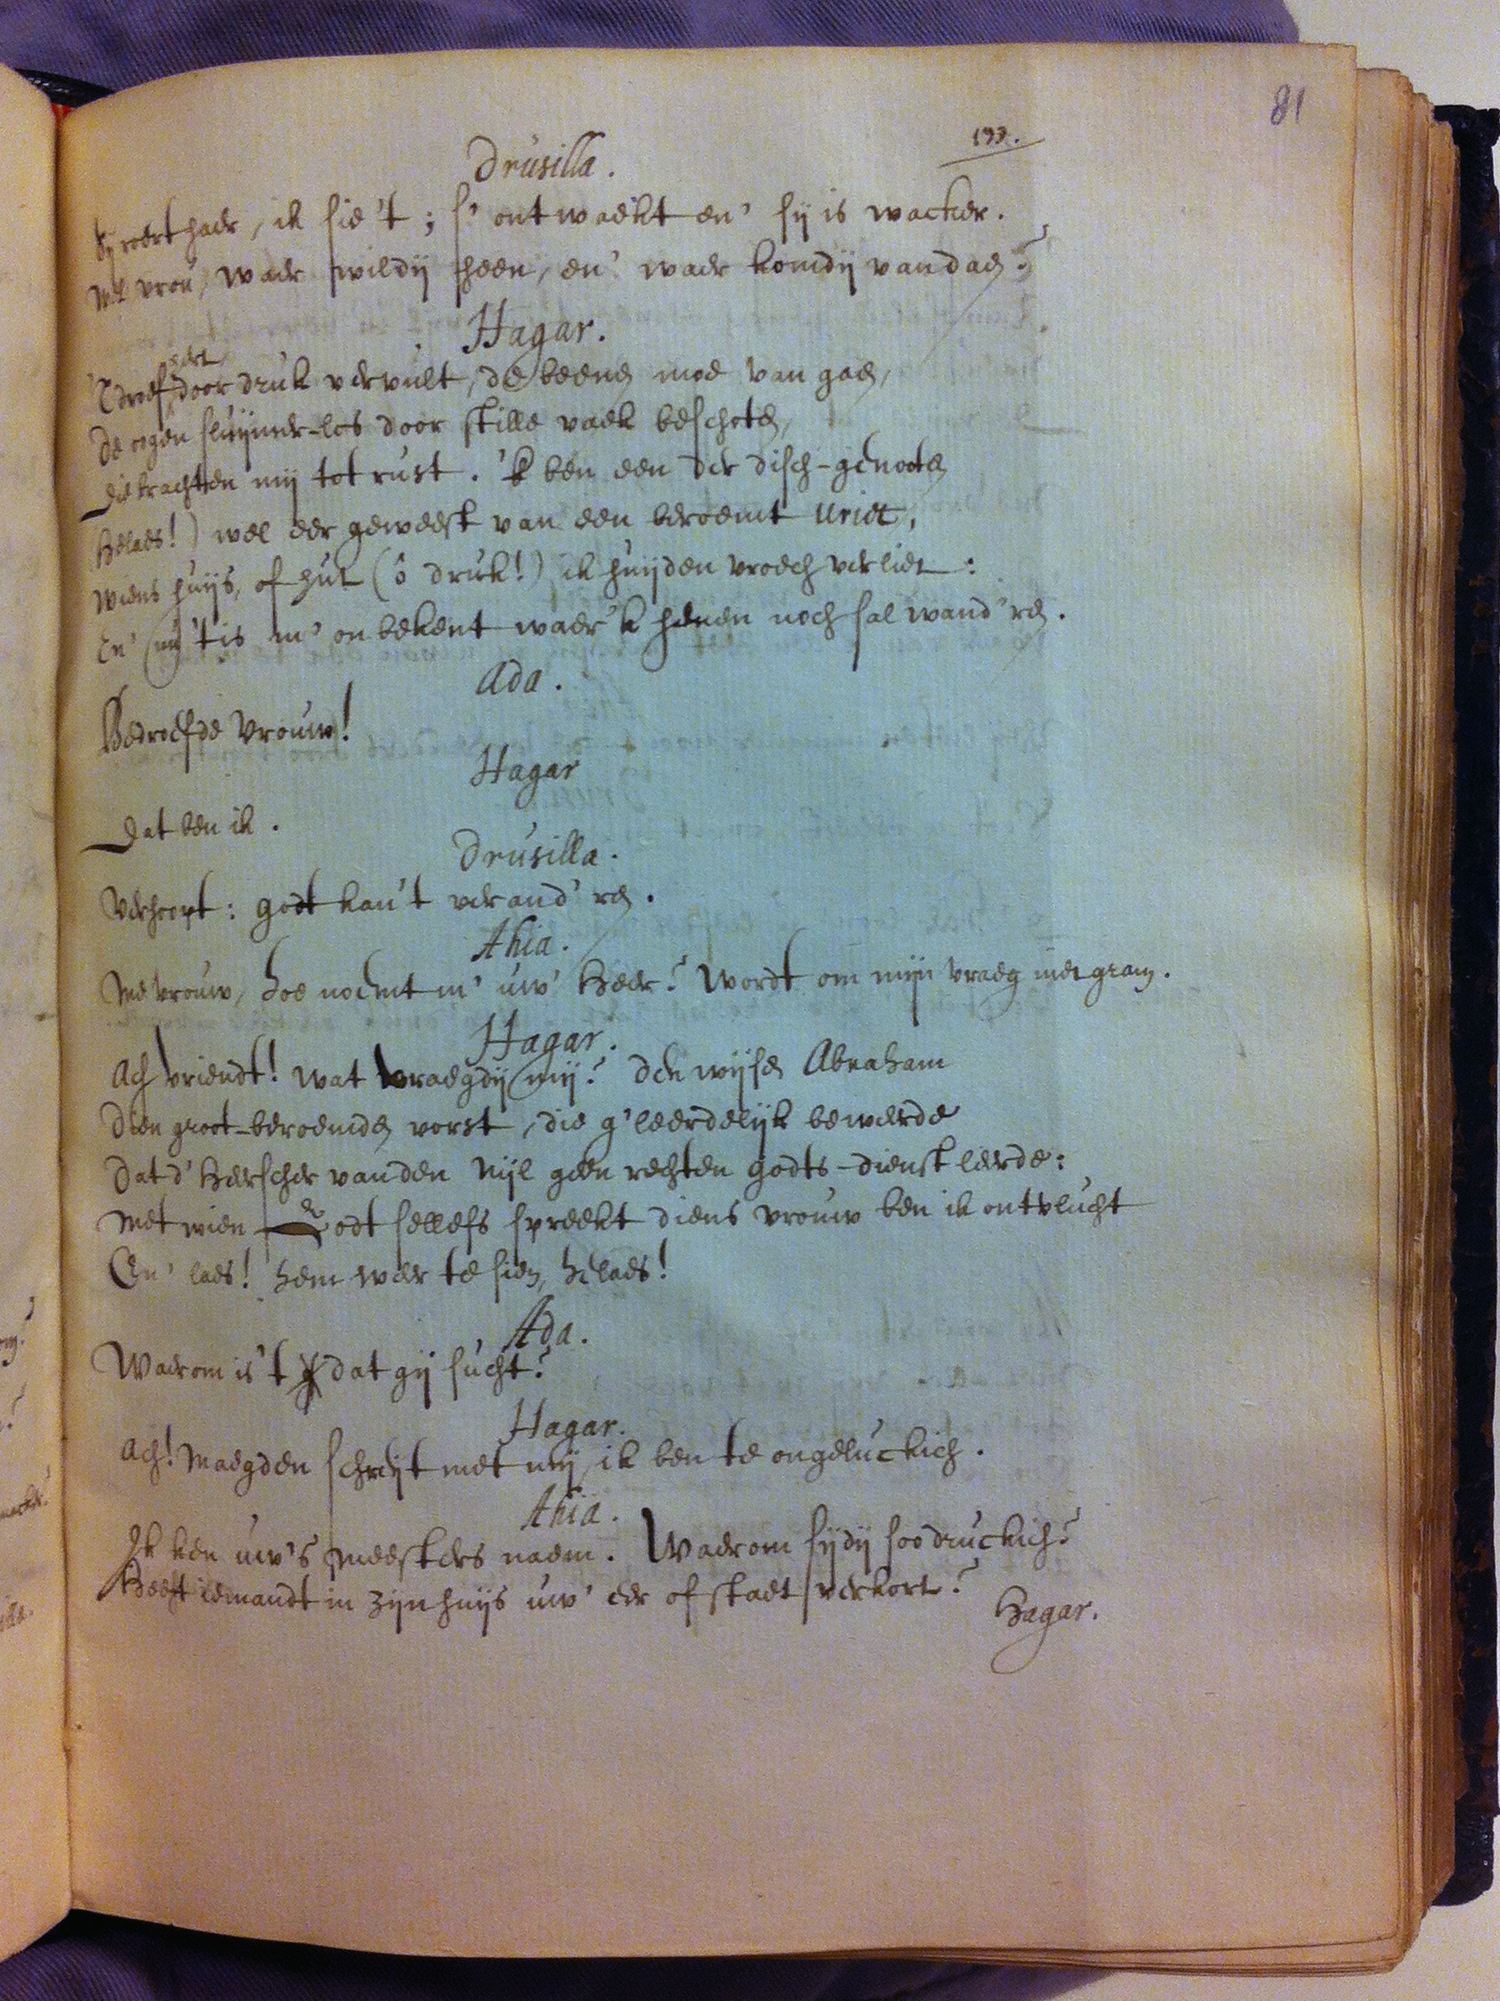 81
193.
Drusilla.
Sy roert haer, ik sie 't; s' ontwaekt en' sij is wacker.
Me vrou, waer wildij heen, en' waer komdij van daen?
Hagar.
't Droef hert door druk vervult, de beenen moe van gaen,
De oogen sluijmer-los door stille vaek beschoten,
Die brachten mij tot rust. 'k ben een der disch-genooten
Helaes!) wel eer geweest van een beroemt vriet,
Wiens huijs, of hut (ô druk!) ik huijden vroech verliet:
En' nu 't is m' onbekent waer 'k henen noch sal wand'ren.
Ada.
Bedroefde Vrouw!
Hagar
Dat ben ik.
Drusilla.
Verhoopt: godt kan 't verand'ren.
Ahia.
Me vrouw, hoe noemt m' uw' Heer? Wordt om mijn vraeg niet gram.
Hagar.
Ach vriendt! wat vraegdij mij? den wijsen Abraham
Dien groot-beroemden vorst, die g'leerdelijk beweerde
Dat d' Heerscher van den Nijl geen rechten godts-dienst leerde:
Met wien odt selfs spreekt diens vrouw ben ik ontvlucht
En' laes! hem weer te sien, helaes!
Ada.
Waerom is 't dat gij sucht?
Hagar.
Ach! Maegden schreijt met mij, ik ben te ongeluckich.
Ahia.
Ik ken uw's meesters naem. Waerom sijdij soo druckich?
Heeft iemandt in zijn huijs uw' eer of staet verkort?
Hagar.